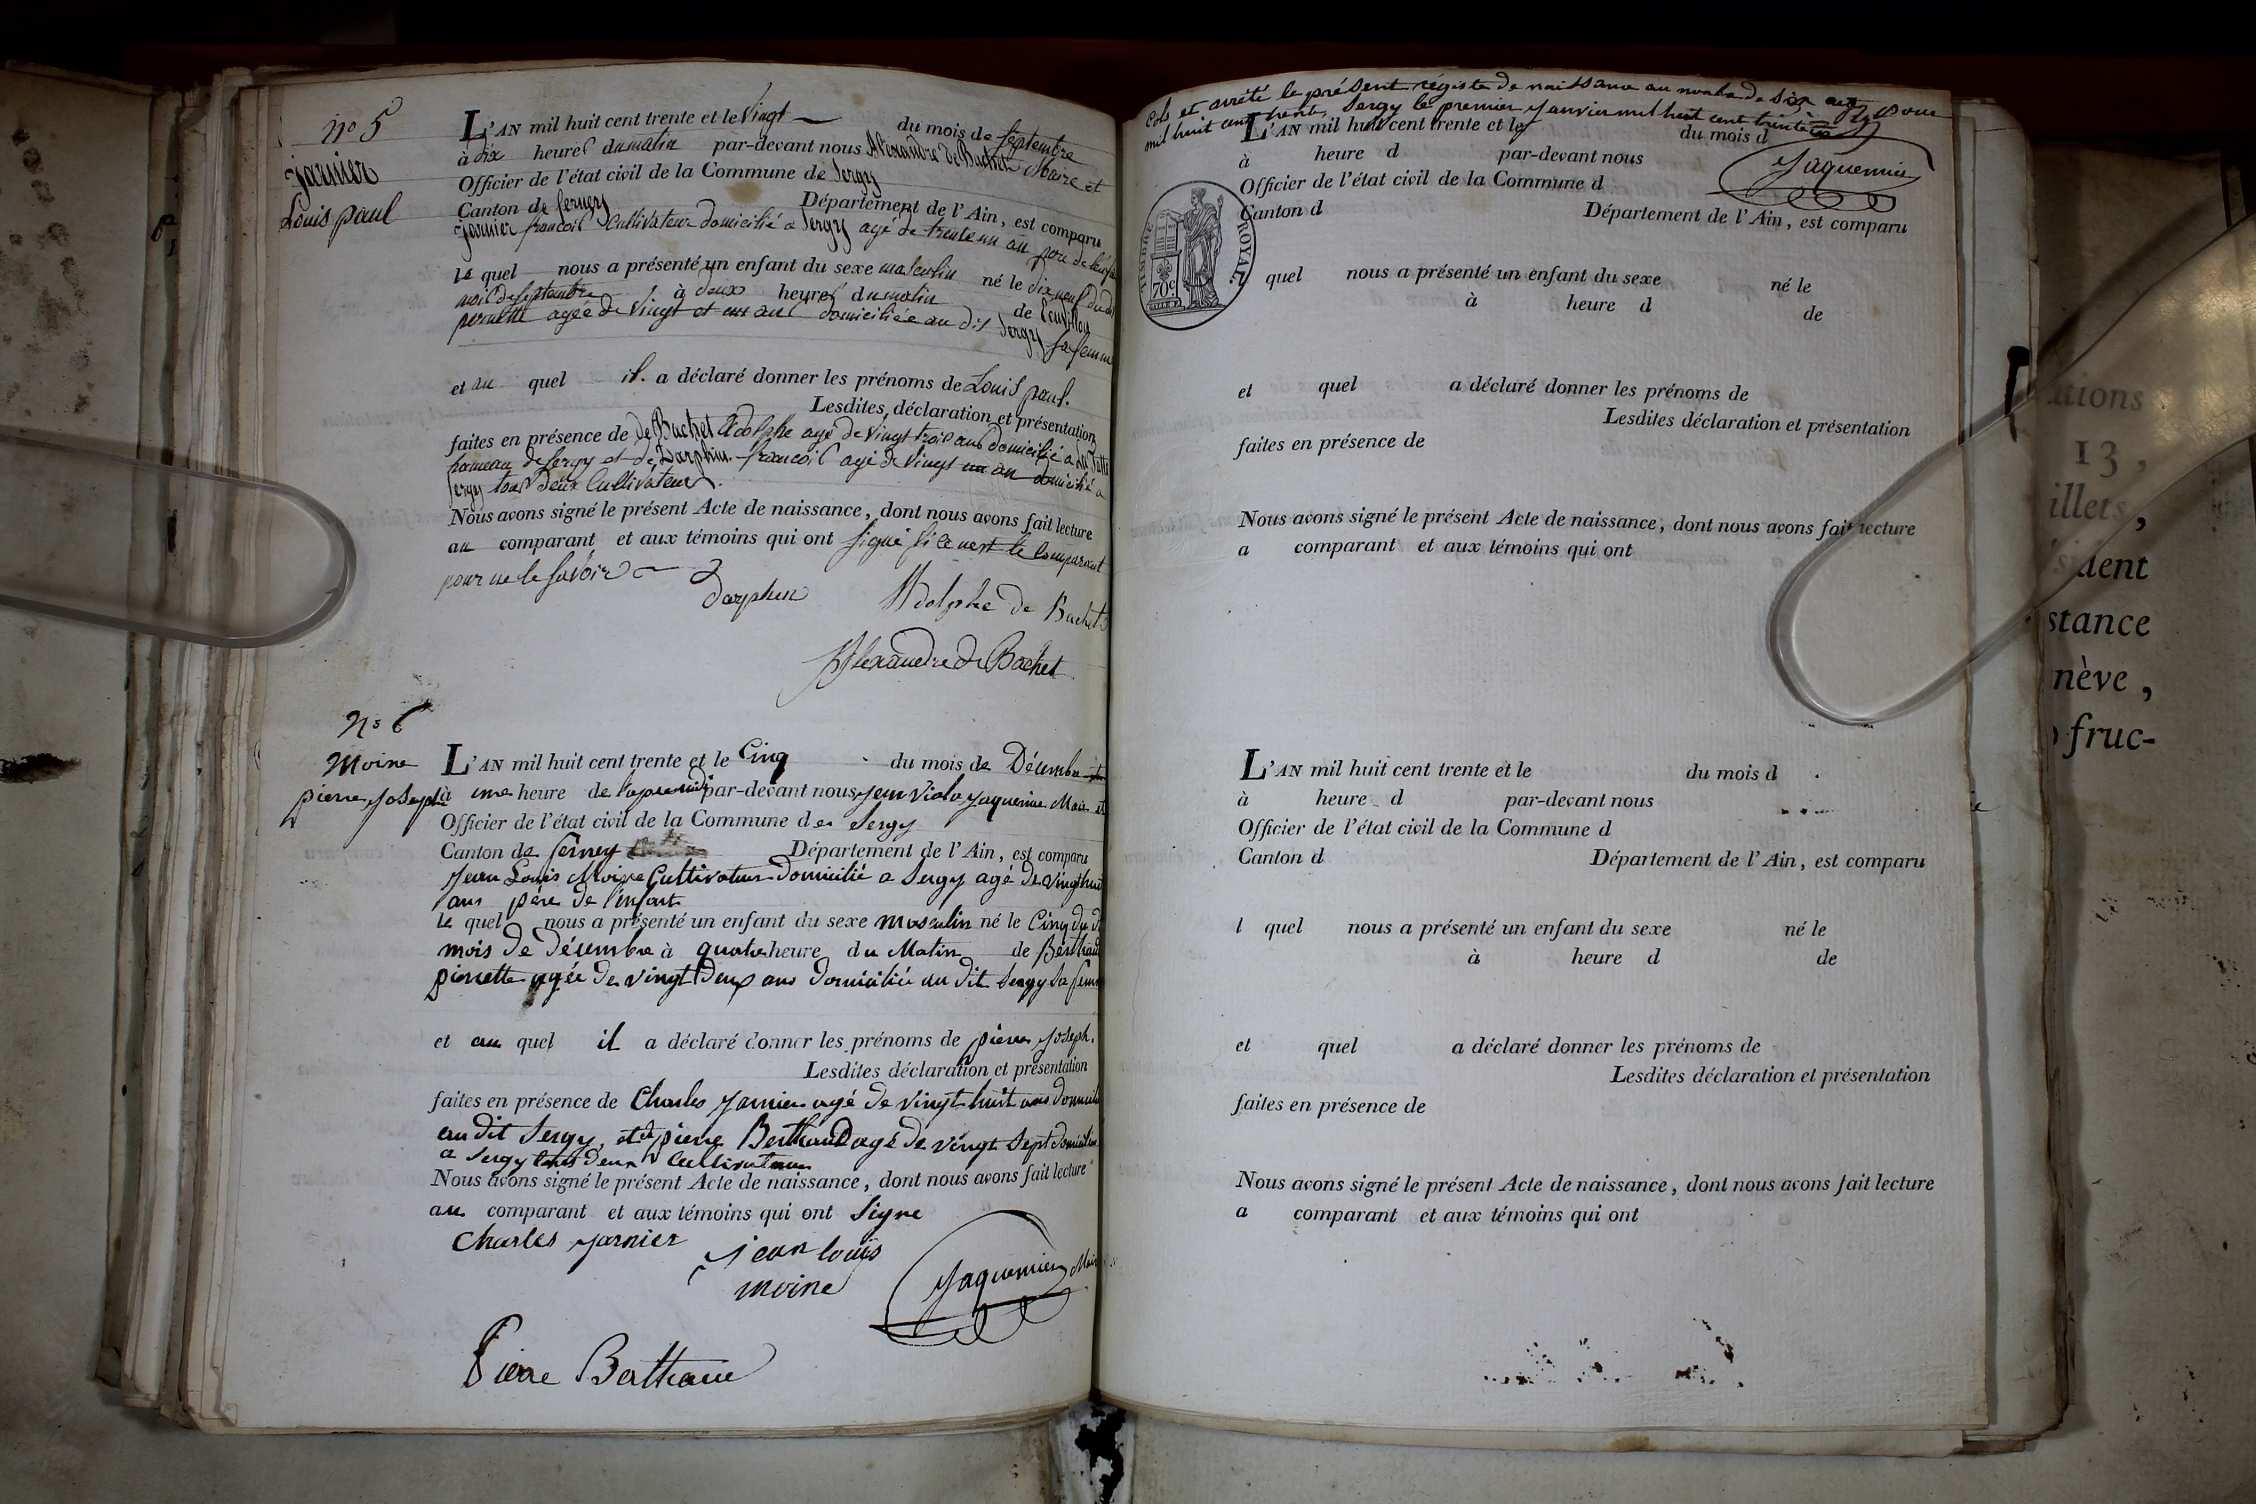 no 5
Janier
Louis paul
L'AN mil huit cent trente et le Vingt du mois de Septembre
à dix heures du matin par-devant nous Alexandre de Bachet Maire et
Officier de l'état civil de la Commune de Sergy
Canton de ferney Département de l'Ain, est comparu
Janier francois Cultivateur domicilié a Sergy agé de trente un an pere de
le quel nous a présenté un enfant du sexe masculin né le dix neuf du dit
mois de Septembre à deux heures du matin de
pernette agée de Vingt et un ans domiciliée au dit Sergy sa femme
et au quel il a déclaré donner les prénoms de Louis paul.
Lesdites déclaration et présentation
faites en présence de de Bachet Adolphe agé de Vingt trois ans domicilié a
hameau de Sergy et de Darphin francois agé de Vingt un an domicilié a
Sergy tous deux Cultivateurs.
Nous avons signé le présent Acte de naissance, dont nous avons fait lecture
au comparant et aux témoins qui ont signé si ce n'est le comparant
pour ne le savoir
Darphin Adolphe de Bachet
Alexandre de Bachet
No 6
Moine
pierre Joseph
L'AN mil huit cent trente et le Cinq du mois de Décembre
à une heure de l'apremidi par-devant nous Jaquemier Maire et
Officier de l'état civil de la Commune de Sergy
Canton de ferney Département de l'Ain, est comparu
Jean Louis Moine Cultivateur domicilié a Sergy agé de Vingt huit
ans père de l'enfant
le quel nous a présenté un enfant du sexe masculin né le Cinq du d
mois de décembre à quatre heure du Matin de Berthaud
pierrette agée de vingt deux ans domiciliée au dit Sergy Sa femme
et au quel il a déclaré donner les prénoms de pierre Joseph.
Lesdites déclaration et présentation
faites en présence de Charles Jarnier agé de vingt huit ans domicilié
au dit Sergy, et de pierre Berthaud agé de vingt Sept domicilié
a Sergy tous deux Cultivateurs
Nous avons signé le présent Acte de naissance, dont nous avons fait lecture
au comparant et aux témoins qui ont Signé
Charles Jarnier
jean louis
moine
Jaquemier Maire
Pierre Berthaud
Clos et arrété le présent régistre de naissance au nombre de Six actes pour
mil huit cent trente, Sergy le premier Janvier mil huit cent trente un
Jaquemier
TIMBRE ROYAL.
70c
L'AN mil huit cent trente et le du mois d
à heure d par-devant nous
Officier de l'état civil de la Commune d
Canton d Département de l'Ain, est comparu
quel nous a présenté un enfant du sexe né le
à heure d de
et quel a déclaré donner les prénoms de
Lesdites déclaration et présentation
faites en présence de
Nous avons signé le présent Acte de naissance, dont nous avons fait lecture
a comparant et aux témoins qui ont
L'AN mil huit cent trente et le du mois d
à heure d par-devant nous
Officier de l'état civil de la Commune d
Canton d Département de l'Ain, est comparu
l quel nous a présenté un enfant du sexe né le
à heure d de
et quel a déclaré donner les prénoms de
Lesdites déclaration et présentation
faites en présence de
Nous avons signé le présent Acte de naissance, dont nous avons fait lecture
a comparant et aux témoins qui ont
ations
13,
illets,
sident
stance
nève,
fruc-